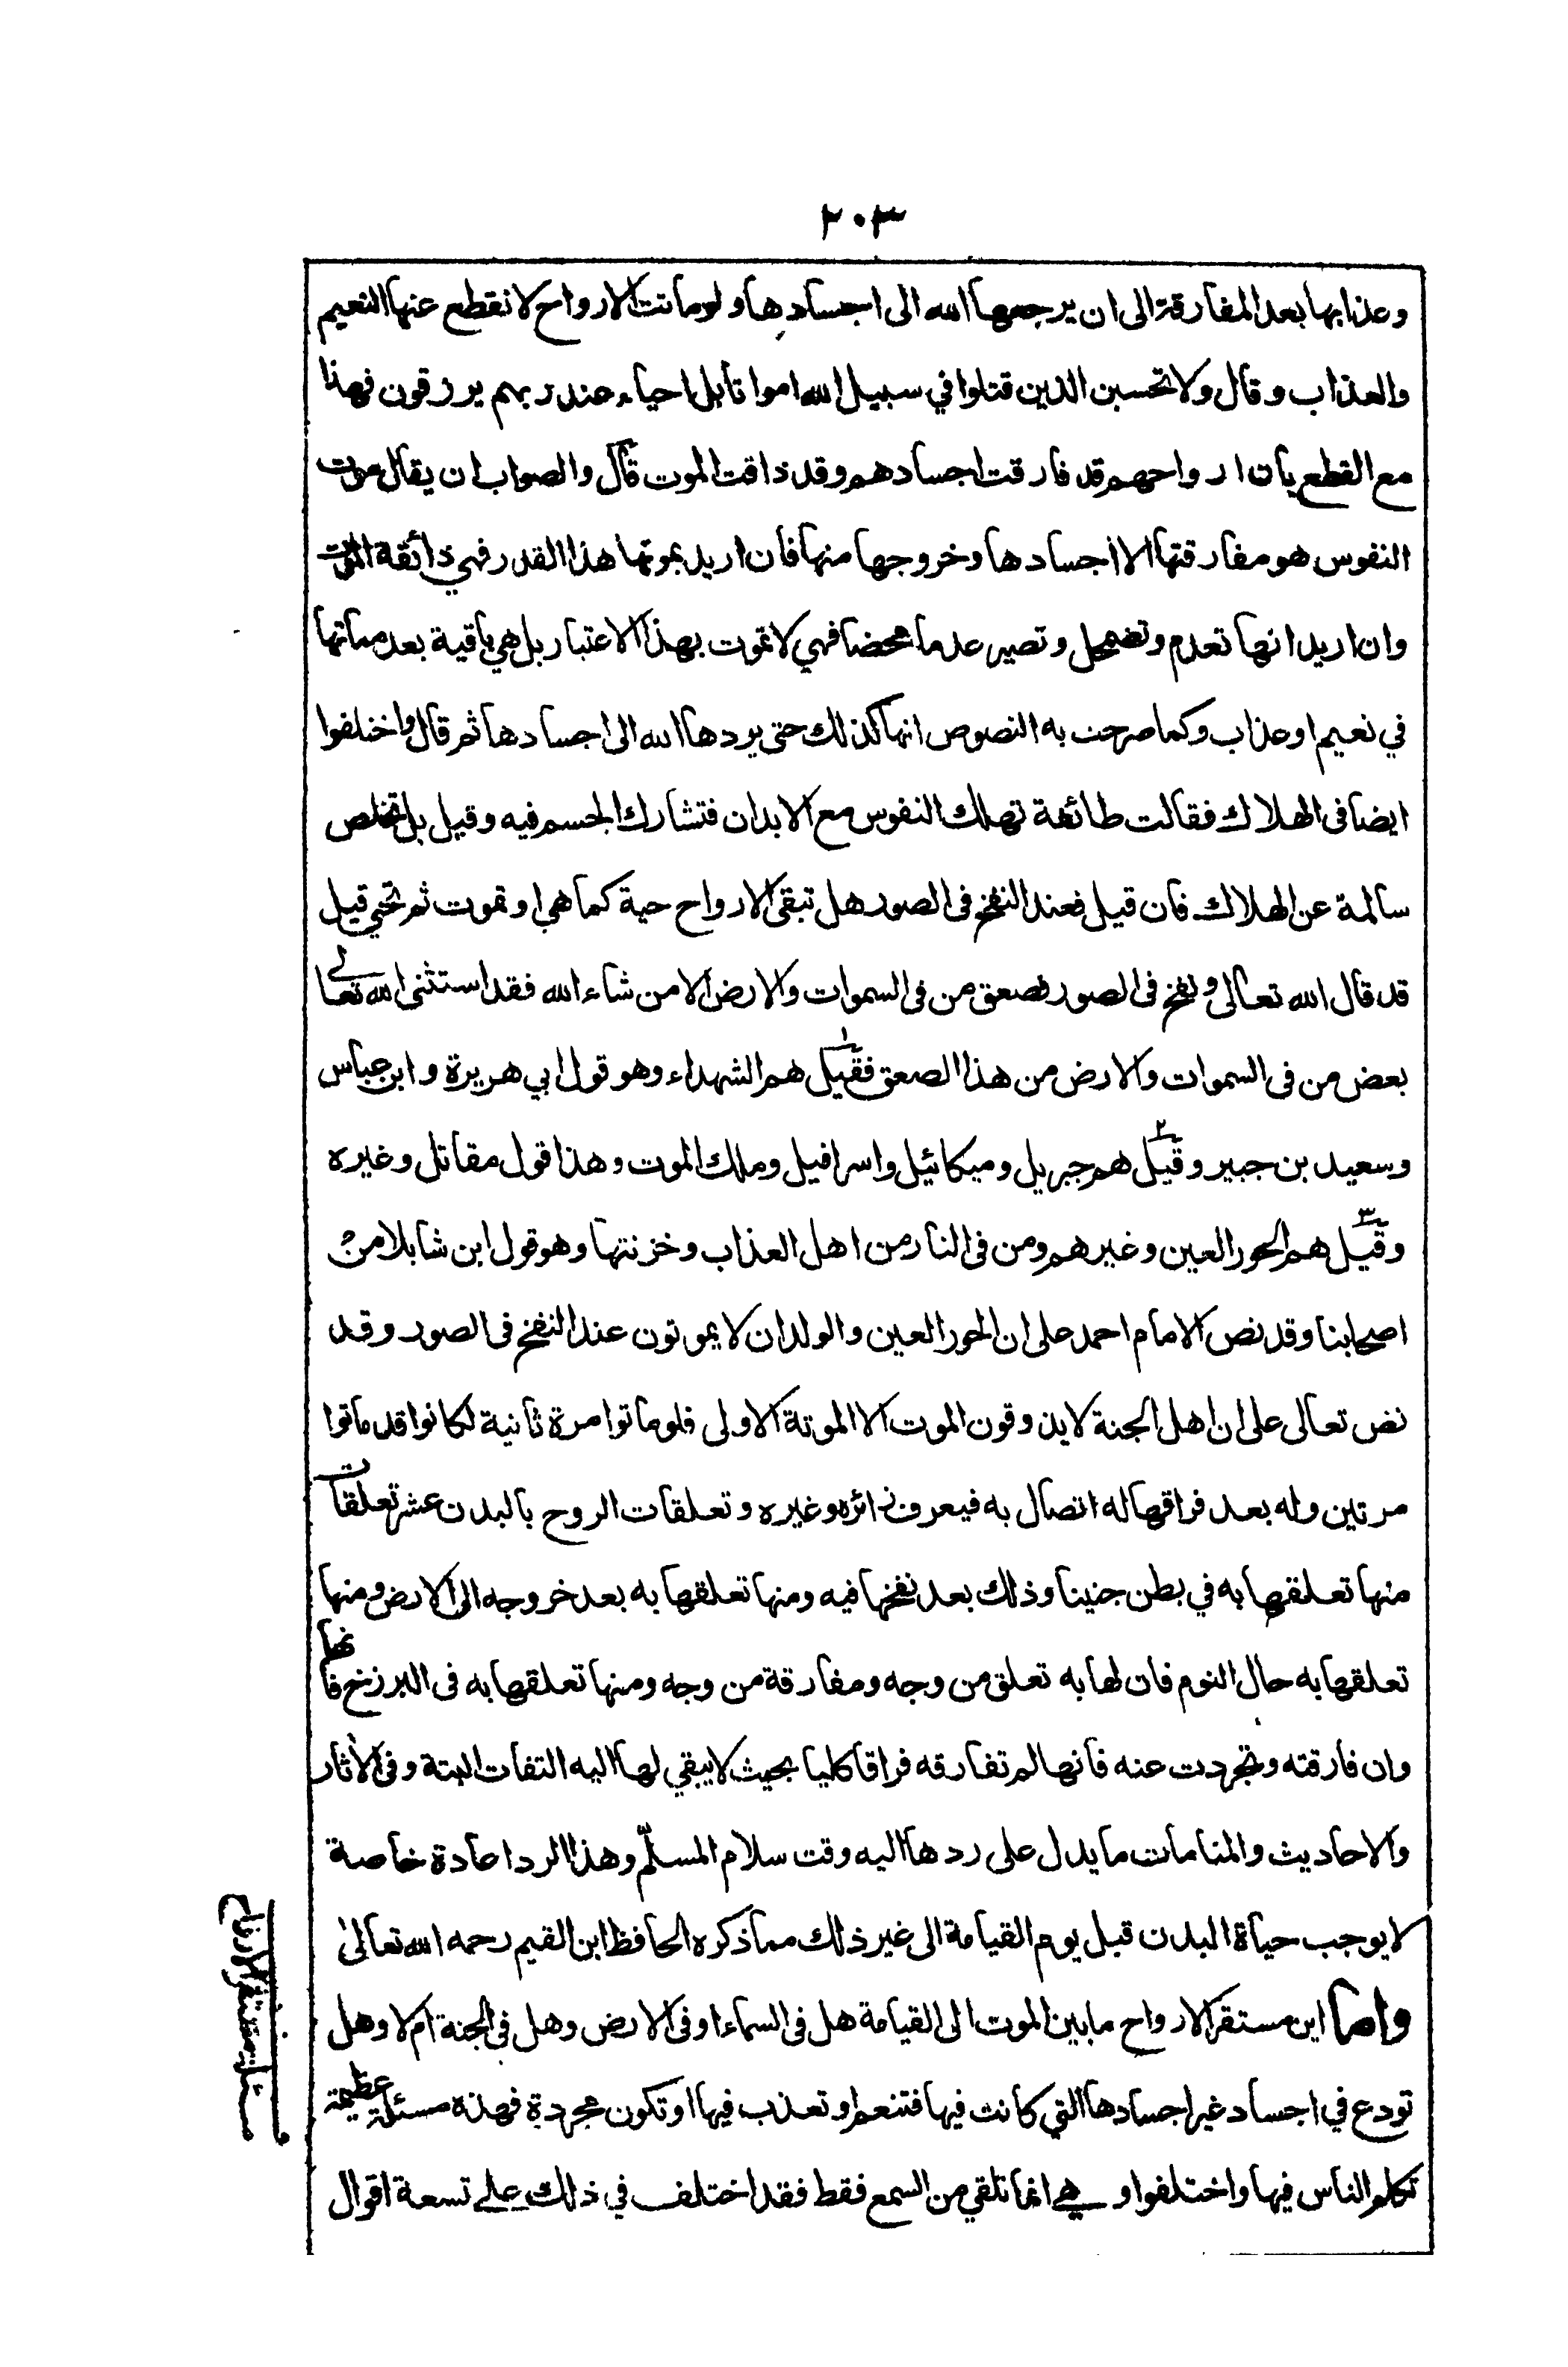 ٢٠٣
وعذابها بعد المفارقة الى ان يرجعها الله الى اجسادها ولو ماتت الارواح لانقطع عنها النعيم
والعذاب وقال ولا تحسبن الذين قتلوا في سبيل الله امواتا بل احياء عند ربهم يرزقون فهذا
مع القطع بان ارواحهم قد فارقت اجسادهم وقد ذاقت الموت قال والصواب ان يقال موت
النفوس هو مفارقتها الا اجسادها وخروجها منها فان اريد بموتها هذا القدر فهي ذائقة الموت
وان اريد انها تعدم وتضمحل وتصير عدما محضا فهي لا تموت بهذا الاعتبار بل هي باقية بعد مماتها
في نعيم او عذاب وكما صرحت به النصوص انها كذلك حتى يردها الله الى اجسادها ثم قال واختلفوا
ايضا فى الهلاك فقالت طائفة تهلك النفوس مع الابدان فتشارك الجسم فيه وقيل بل تخلص
سالمة عن الهلاك فان قيل فعند النفخ فى الصور هل تبقى الارواح حية كما هي او تموت ثم تحيي قيل
قد قال الله تعالى ونفخ فى الصور فصعق من فى السموات والارض الا من شاء الله فقد استثنى الله تعالى
بعض من فى السموات والارض من هذا الصعق فقيل ١ هم الشهداء وهو قول ابي هريرة وابن عباس
وسعيد بن جبير وقيل ٢ هم جبريل وميكائيل واسرافيل وملك الموت وهذا قول مقاتل وغيره
وقيل ٣ هم الحور العين وغيرهم ومن فى النار من اهل العذاب وخزنتها وهو قول ابن شابلا من
اصحابنا وقد نص الامام احمد على ان الحور العين والولدان لا يموتون عند النفخ فى الصور وقد
نص تعالى على ان اهل الجنة لا يذوقون الموت الا الموتة الاولى فلو ماتوا مرة ثانية لكانوا قد ماتوا
مرتين وله بعد فراقها له اتصال به فيعرف زائره وغيره وتعلقات الروح بالبدن عشر تعلقات
منها تعلقها به في بطن جنينا وذلك بعد نفخها فيه ومنها تعلقها به بعد خروجه الى الارض ومنها
تعلقها به حال النوم فان لها به تعلق من وجه ومفارقة من وجه ومنها تعلقها به فى البرزخ فانها
وان فارقته وتجردت عنه فانها لم تفارقه فراقا كليا بحيث لا يبقي لها اليه التفات البتة وفى الأثار
والاحاديث والمنامات ما يدل على ردها اليه وقت سلام المسلّم وهذا الرد اعادة خاصة
لا يوجب حياة البدن قبل يوم القيامة الى غير ذلك مما ذكره الحافظ ابن القيم رحمه الله تعالى
واما اين مستقر الارواح مابين الموت الى القيامة هل فى السماء او فى الارض وهل فى الجنة ام لا وهل
تودع في اجساد غير اجسادها التي كانت فيها فتنعم او تعذب فيها او تكون مجردة فهذه مسئلة عظيمة
تكلم الناس فيها واختلفوا وهي انما تلقي من السمع فقط فقد اختلف في ذلك على تسعة اقوال
مسئلة مستقر الارواح